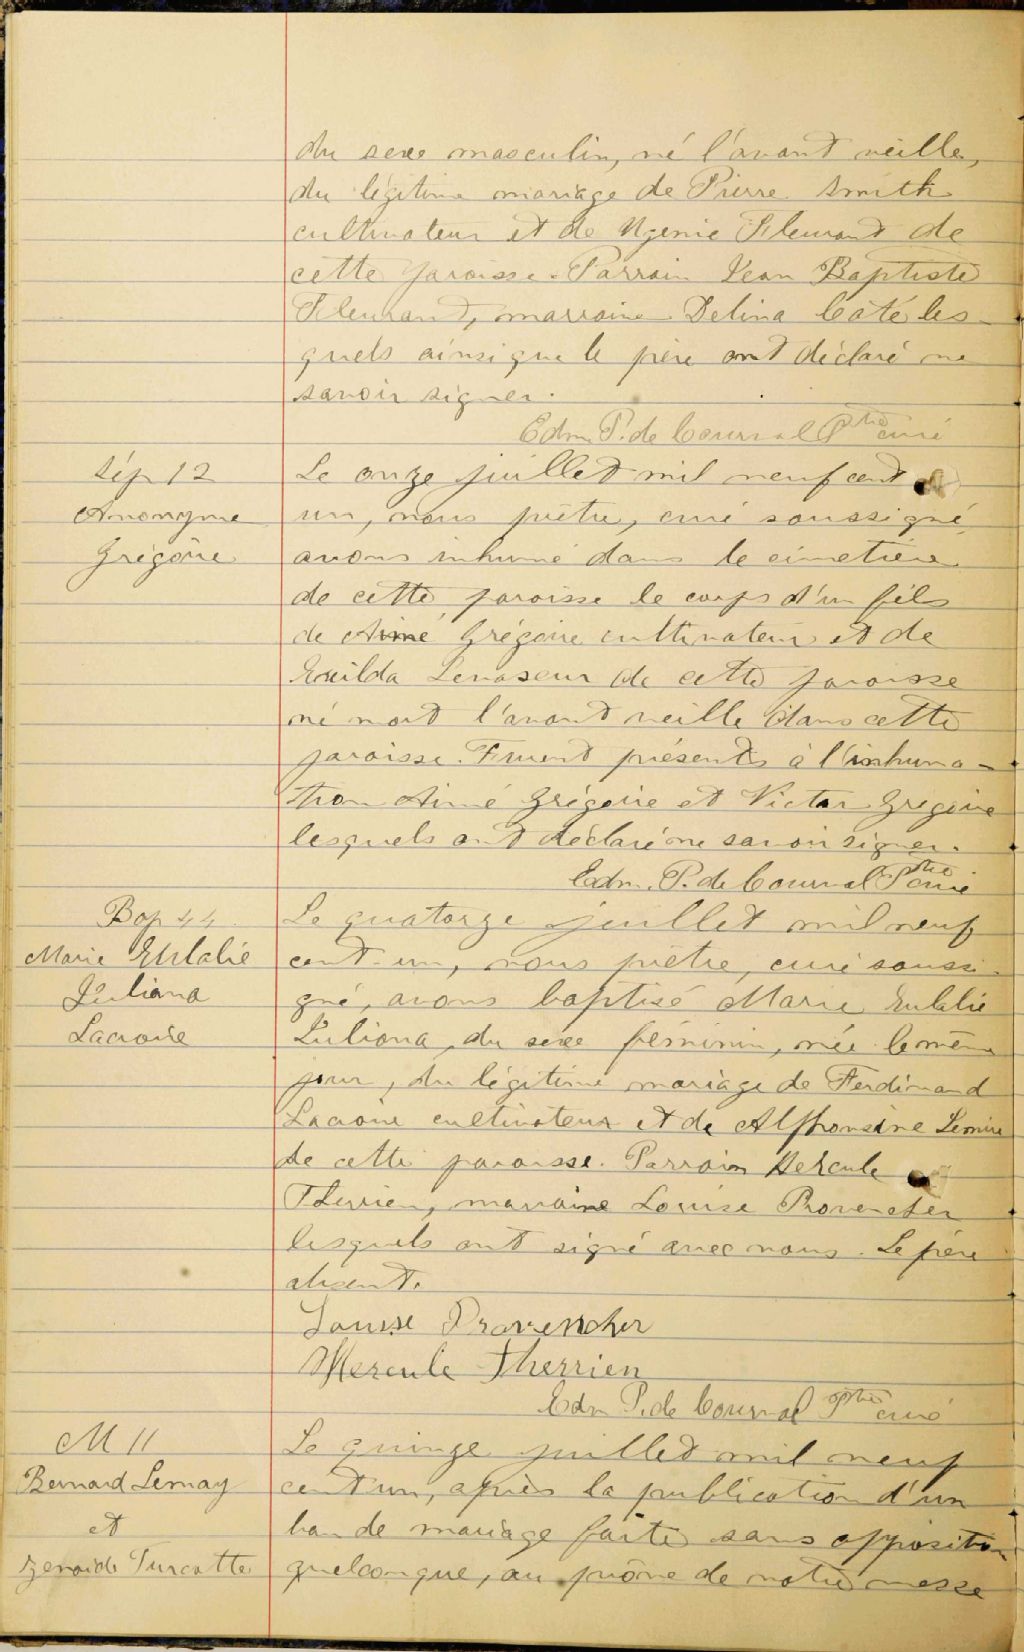 du sexe masculin, né l'avant veille,
du légitime mariage de Pierre Smith
cultivateur et de Ugenie Fleurant de
cette paroisse. Parrain Jean Baptiste
Fleurant, marraine Delina Coté les-
quels ainsi que le père ont déclaré ne
savoir signer.
Edm. P. de Courval Ptre curé
Sép 12
Anonyme
Grégoire
Le onze juillet mil neuf cent
un, nous prêtre, curé soussigné,
avons inhumé dans le cimetière
de cette paroisse le corps d'un fils
de Aimé Grégoire cultivateur et de
Exilda Levasseur de cette paroisse
né mort l'avant veille dans cette
paroisse. Furent présents à l'inhuma-
tion Aimé Grégoire et Victor Grégoire
lesquels ont déclaré ne savoir signer.
Edm. P. de Courval Ptre curé
Bap 44
Marie Eulalie
Juliana
Lacroix
Le quatorze juillet mil neuf
cent-un, nous prêtre, curé soussi-
gné, avons baptisé Marie Eulalie
Juliana, du sexe féminin, née le même
jour, du légitime mariage de Ferdinand
Lacroix cultivateur et de Alphonsine Lemire
de cette paroisse. Parrain Hercule
Therrien, marraine Louise Provencher
lesquels ont signé avec nous. Le père
absent.
Louise Provencher
Hercule Therrien
Edm P. de Courval Ptre curé
M 11
Bernard Lemay
et
Zenaide Turcotte
Le quinze juillet mil neuf
cent un, après la publication d'un
ban de mariage faite sans opposition
quelconque, au prône de notre messe